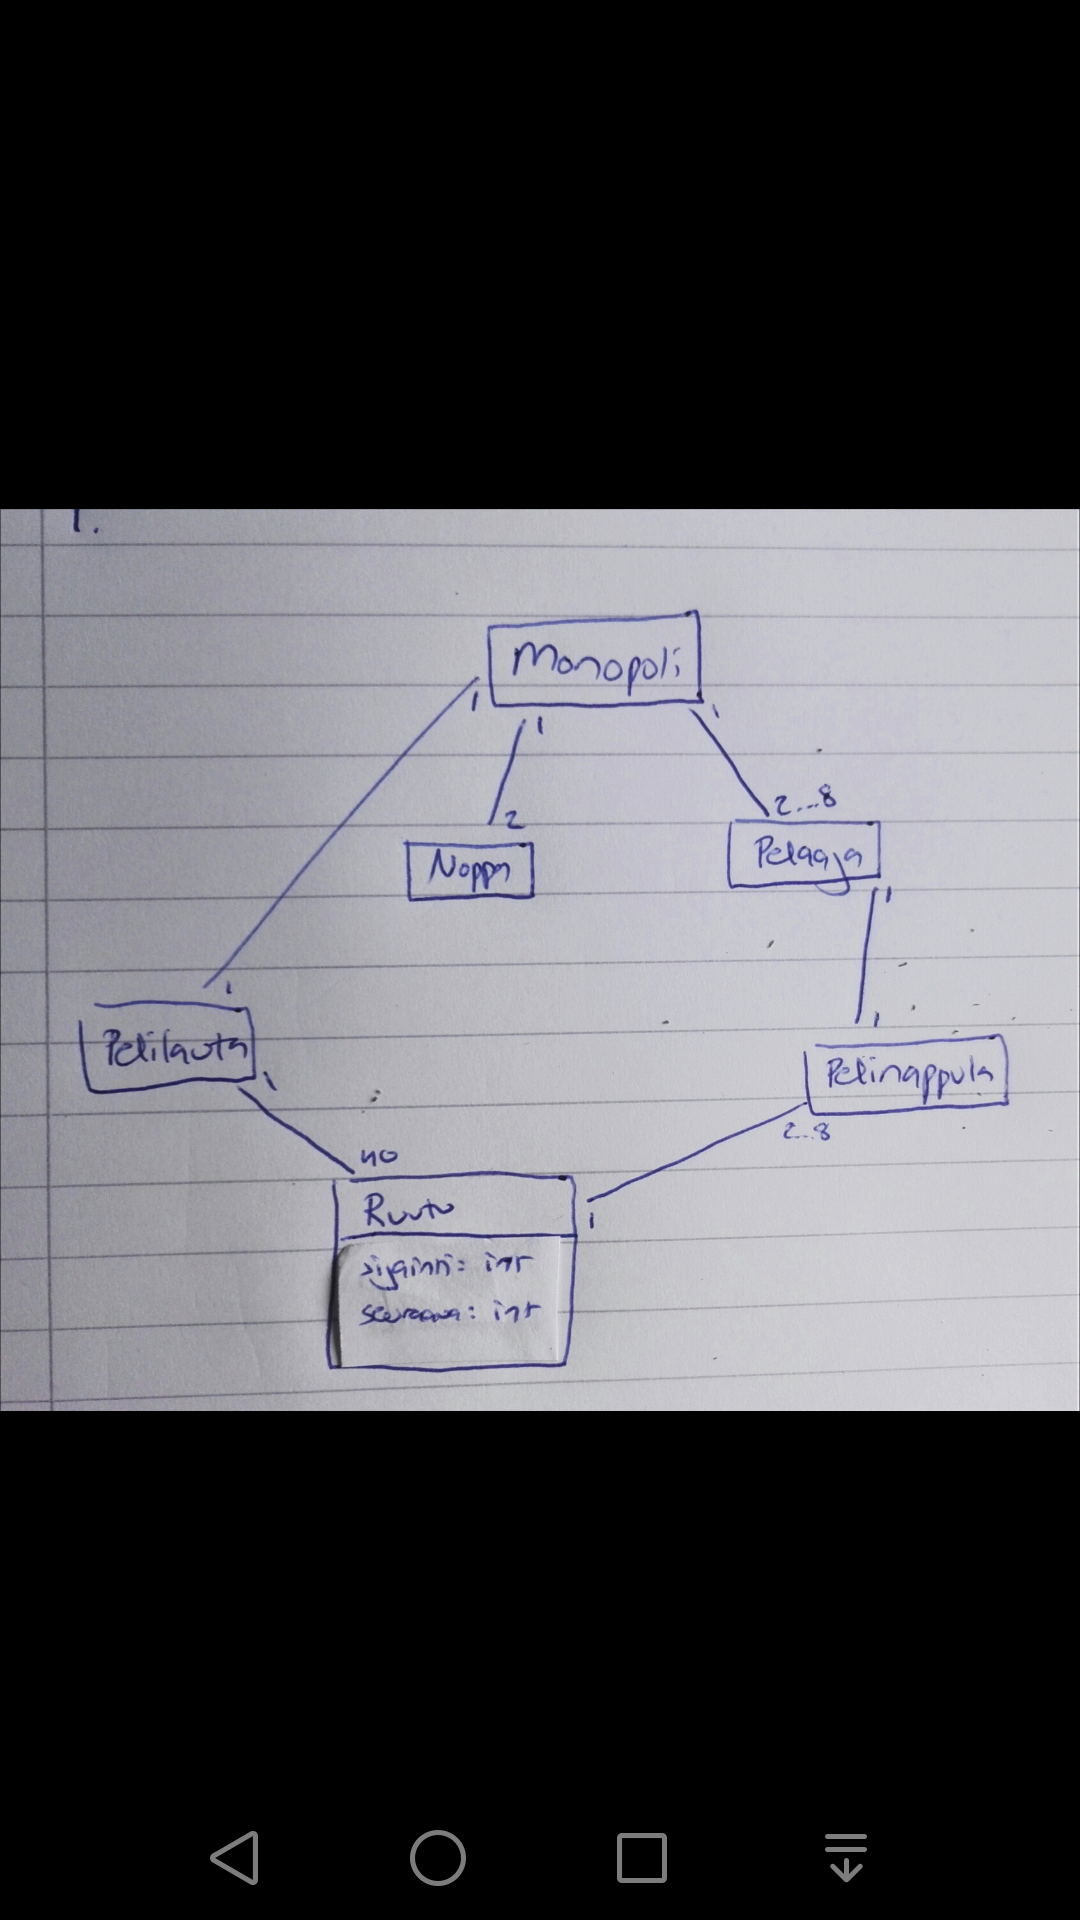 1.
Monopoli
1
1
1
2
2...8
Noppa
Pelaaja
1
1
1
Pelilauta
Pelinappula
1
2..8
40
Ruutu
1
sijainti: int
seuraava: int